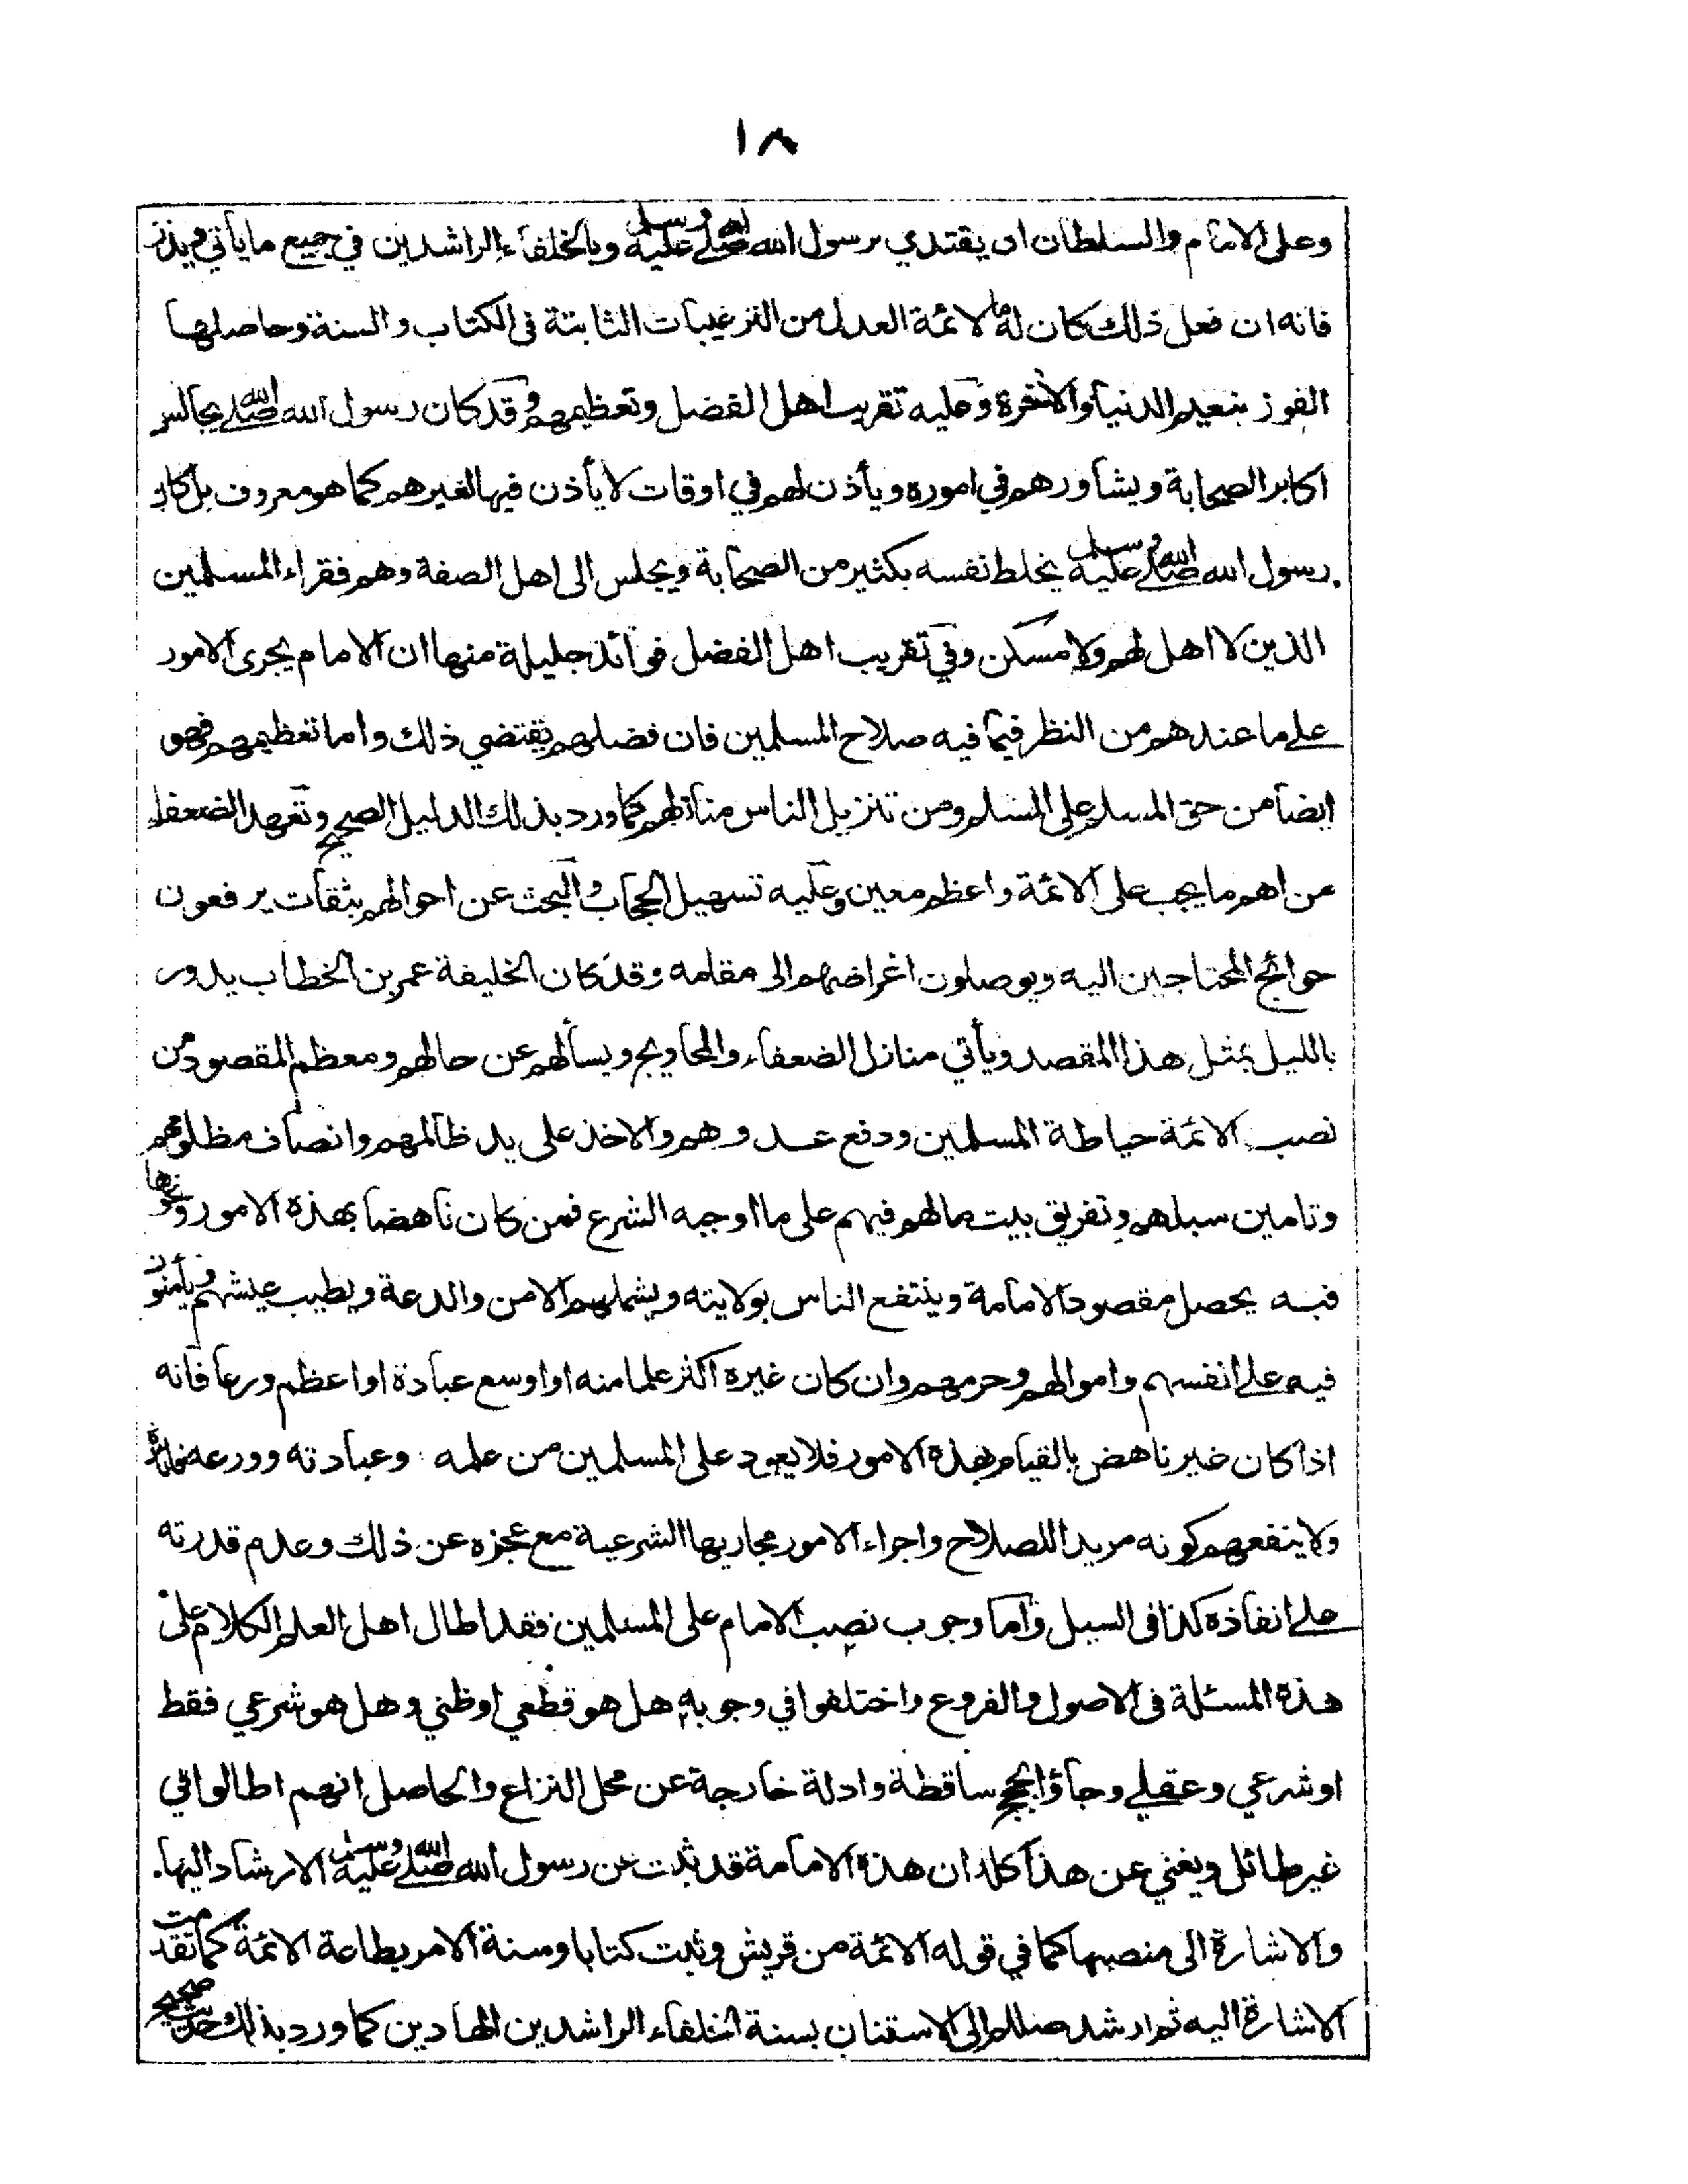 ١٨
وعلى الامام والسلطان ان يقتدي برسول الله صلى الله عليه وسلم وبالخلفاء الراشدين في جميع ما يأتي ويذر
فانه ان فعل ذلك كان له ما لائمة العدل من الترغيبات الثابتة فى الكتاب والسنة وحاصلها
الفوز بنعيم الدنيا والآخرة وعليه تقريب اهل الفضل وتعظيمهم وقد كان رسول الله صلى الله يجالس
اكابر الصحابة ويشاورهم في اموره ويأذن لهم في اوقات لا يأذن فيها لغيرهم كما هو معروف بل كان
رسول الله صلى الله عليه وسلم يخلط نفسه بكثير من الصحابة ويجلس الى اهل الصفة وهم فقراء المسلمين
الذين لا اهل لهم ولا مسكن وفي تقريب اهل الفضل فوائد جليلة منها ان الامام يجرى الامور
على ما عندهم من النظر فيما فيه صلاح المسلمين فان فضلهم يقتضي ذلك واما تعظيمهم فهو
ايضا من حق المسلم على المسلم ومن تنزيل الناس منازلهم كما ورد بذلك الدليل الصحيح وتعهد الضعفاء
من اهم ما يجب على الائمة واعظم معين وعليه تسهيل الحجاب والبحث عن احوالهم بثقات يرفعون
حوائج المحتاجين اليه ويوصلون اغراضهم الى مقامه وقد كان الخليفة عمر بن الخطاب يدور
بالليل بمثل هذا المقصد ويأتي منازل الضعفاء والمحاويج ويسألهم عن حالهم ومعظم المقصود من
نصب الائمة حياطة المسلمين ودفع عدوهم والاخذ على يد ظالمهم وانصاف مظلومهم
وتامين سبلهم وتفريق بيت مالهم فيهم على ما اوجبه الشرع فمن كان ناهضا بهذه الامور ونحوها
فبه يحصل مقصود الامامة وينتفع الناس بولايته ويشملهم الامن والدعة ويطيب عيشهم ويأمنون
فيه على انفسهم واموالهم وحرمهم وان كان غيره اكثر علما منه او اوسع عبادة او اعظم ورعا فانه
اذا كان غير ناهض بالقيام بهذه الامور فلا يعود على المسلمين من علمه وعبادته وورعه فائدة
ولا ينفعهم كونه مريدا للصلاح واجراء الامور مجاريها الشرعية مع عجزه عن ذلك وعدم قدرته
على انفاذه كذا فى السيل واما وجوب نصب الامام على المسلمين فقد اطال اهل العلم الكلام على
هذه المسئلة فى الاصول والفروع واختلفوا في وجوبه هل هو قطعي او ظني وهل هو شرعي فقط
او شرعي وعقلي وجاؤا بحجج ساقطة وادلة خارجة عن محل النزاع والحاصل انهم اطالوا في
غير طائل ويغني عن هذا كله ان هذه الامامة قد ثبت عن رسول الله صلى الله عليه وسلم الارشاد اليها.
والاشارة الى منصبها كما في قوله الائمة من قريش وثبت كتابا وسنة الامر بطاعة الائمة كما تقدمت
الاشارة اليه ثم ارشد صللم الى الاستنان بسنة الخلفاء الراشدين الهادين كما ورد بذلك حديث صحيح